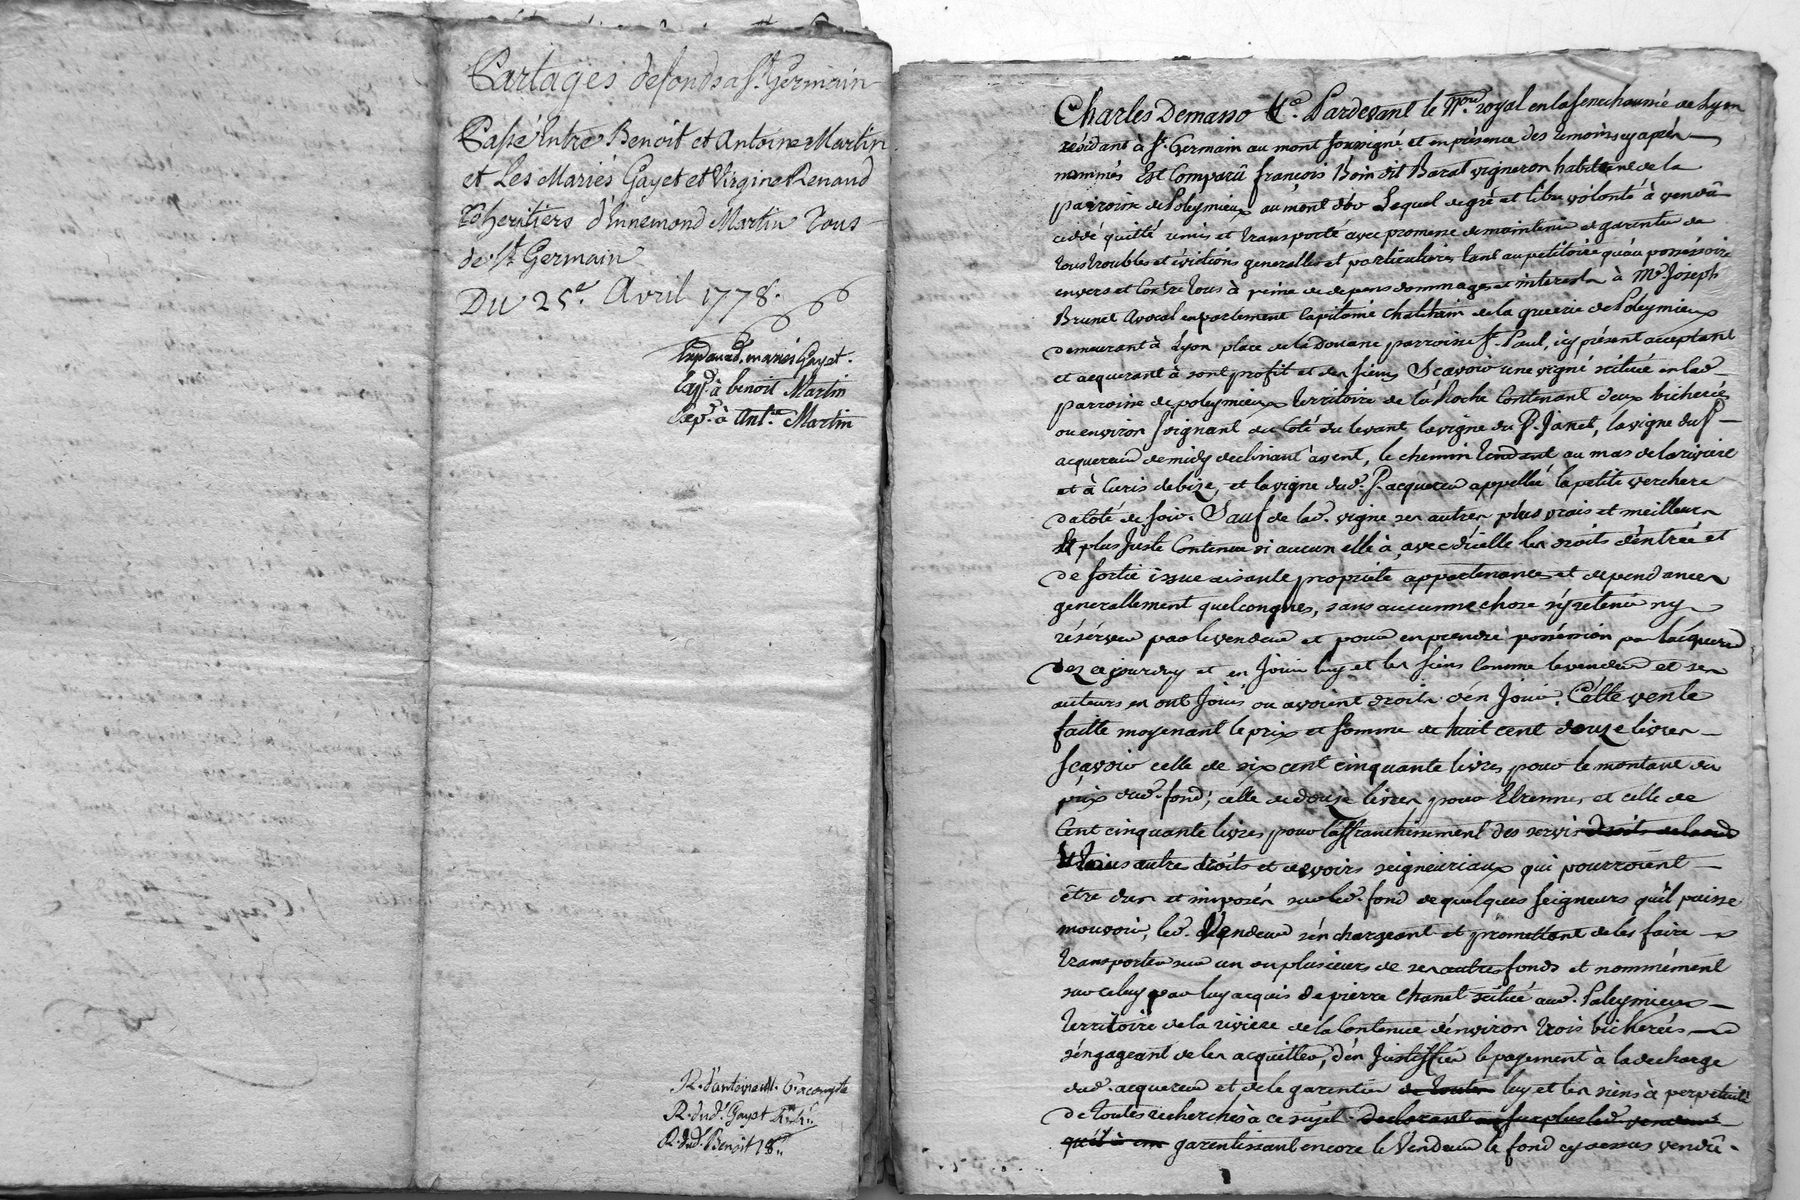 Partages de fonds a St. Germain
Passé entre Benoit et Antoine Martin
et Les Mariés Gayet et Virgine Renaud
Cohéritiers d'Ennemond Martin Tous
de St. Germain
Du 25e. Avril 1778.
mariés Gayet.
Exp. à benoit Martin
Exp. à Ant.ne Martin
R. d'antoine M. 6# acompte
R. dud. Gayet
R. dud. Benoit 18#
Charles Demasso &a. Pardevant le Nre. royal en la senechaussée de Lyon
résidant à St. Germain au mont soussigné et en présence des temoins cy après
nommés Est Comparû françois Boin dit Barat vigneron habitant de la
parroisse de Poleymieux au mont d'or Lequel de gré et libre volonté à vendû
cédé quitté remis et transporté avec promesse de maintenir et garentir de
tous troubles et évictions generalles et particulieres tant au petitoire qu'au possessoire
envers et Contre tous à peine de depens dommages et interests à Mr. Joseph
Brunet Avocat en parlement Capitaine Chatelain de la de Poleymieux
demeurant à Lyon place de la Douane parroisse St. Paul, icy présent acceptant
et acquerant à sont profit et des siens Scavoir une vigne scituée en lad.
parroisse de poleymieux territoire de la Roche Contenant deux bicherées
ou environ joignant du Coté du levant la vigne du Sr. Janet, la vigne du Sr.
acquereur de midy declinant à vent, le chemin tendant au mas de la riviere
et à Curis de bize, et la vigne dud. Sr. acquereur appellée la petite verchere
du coté de soir. Sauf de lad. vigne ses autres plus vrais et meilleurs
et plus juste Contenue si aucun elle à, avec d'icelle les droits d'entrée et
de sortie issue aisance propriete appartenances et dependances
generallement quelconques, sans aucunne chose s'y retenir ny
réserver par le vendeur et pour en prendre possession par l'acquereur
des ce jourdhuy et en jouir luy et les siens Comme le vendeur et ses
auteurs en ont Jouis ou avoient droits d'en jouir. Cette vente
faitte moyenant le prix et somme de huit cent douze livres
sçavoir celle de six cent cinquante livres pour le montant du
prix dud. fond; celle de douze livres pour Etrennes et celle de
Cent cinquante livres pour l'affranchissement des servis droits de laods
& tous autre droits et devoirs seigneuriaux qui pourroient
être dus et imposés sur led. fond de quelques seigneurs qu'il puisse
mouvoir, led. Vendeur s'en chargeant et promettant de les faire
transporter sur un ou plusieurs de ses autres fonds et nommément
sur celuy par luy acquis de pierre Chanet scitué aud. Poleymieux
territoire de la riviere de la Contenue d'environ trois bicherées
s'engageant de les acquitter, d'en justiffier le payement à la decharge
dud. acquereur et de le garentir de toutes luy et les siens à perpetuité
de toutes recherches à ce sujet. Declarant au surplus led. vendeur
qu'il à garentissant encore le Vendeur le fond cy dessus vendû